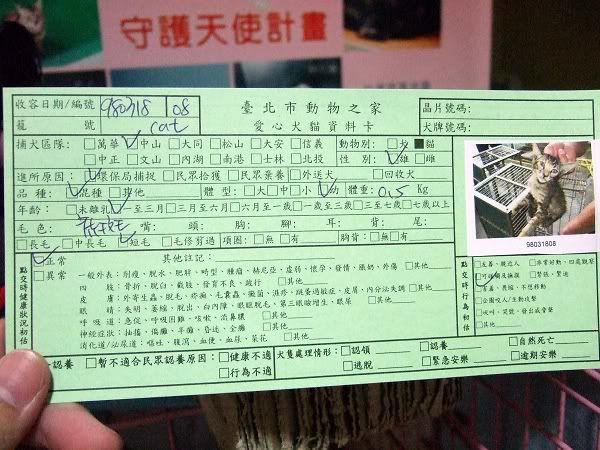 守護天使計畫
收容日期/編號 980318 08 臺北市動物之家 晶片號碼:
籠號 cat 愛心犬貓資料卡 犬牌號碼:
捕犬區隊: □萬華 ☑中山 □大同 □松山 □大安 □信義 動物別: □犬 ■貓
□中正 □文山 □內湖 □南港 □士林 □北投 性別: ☑雄 □雌
進所原因: ☑環保局捕捉 □民眾拾獲 □民眾棄養 □外送犬 □回收犬
品種: ☑混種 □其他 體型: □大 □中 □小 ☑幼 體重: 0.5 Kg
年齡: □未離乳 ☑一至三月 □三至六月 □六月至一歲 □一至三歲 □三至七歲 □七歲以上
毛色: 嘴: 頭: 胸: 腳: 耳: 背: 尾:
□長毛 □中長毛 ☑短毛 □毛修剪過 項圈: □無 □有 胸背: □無 □有
98031808
點交時健康狀況初估
☑正常 其他註記:
□異常 一般外表: 削瘦、脫水、肥胖、畸型、腫瘤、赫尼亞、虛弱、懷孕、發情、餵奶、外傷 □其他
四肢: 骨折、脫臼、截肢、發育不良、跛行 □其他
皮膚: 外寄生蟲、脫毛、疥癬、毛囊蟲、黴菌、濕疹、跳蚤過敏症、皮屑、內分泌失調 □其他
眼睛: 失明、萎縮、脫出、白內障、眼瞼脫毛、第三眼瞼增生、眼屎 □其他
呼吸道: 急促、呼吸困難、咳嗽、流鼻膿 □其他
神經症狀: 抽搐、偏癱、半癱、昏迷、全癱 □其他
消化道/泌尿道: 嘔吐、腹瀉、血便、血尿、菜花 □其他
點交時行為初估
□友善、親近人 □非常好動、四處觀察
☑可碰觸及撫摸 □緊張、緊迫
□害羞、畏縮、不想移動
□企圖咬人/主動攻擊
□吠叫、哭號、發出威脅聲
□其他
認養: □暫不適合民眾認養原因: □健康不適 □行為不適
犬隻處理情形: □認領 □認養 □自然死亡
□逃脫 □緊急安樂 □逾期安樂